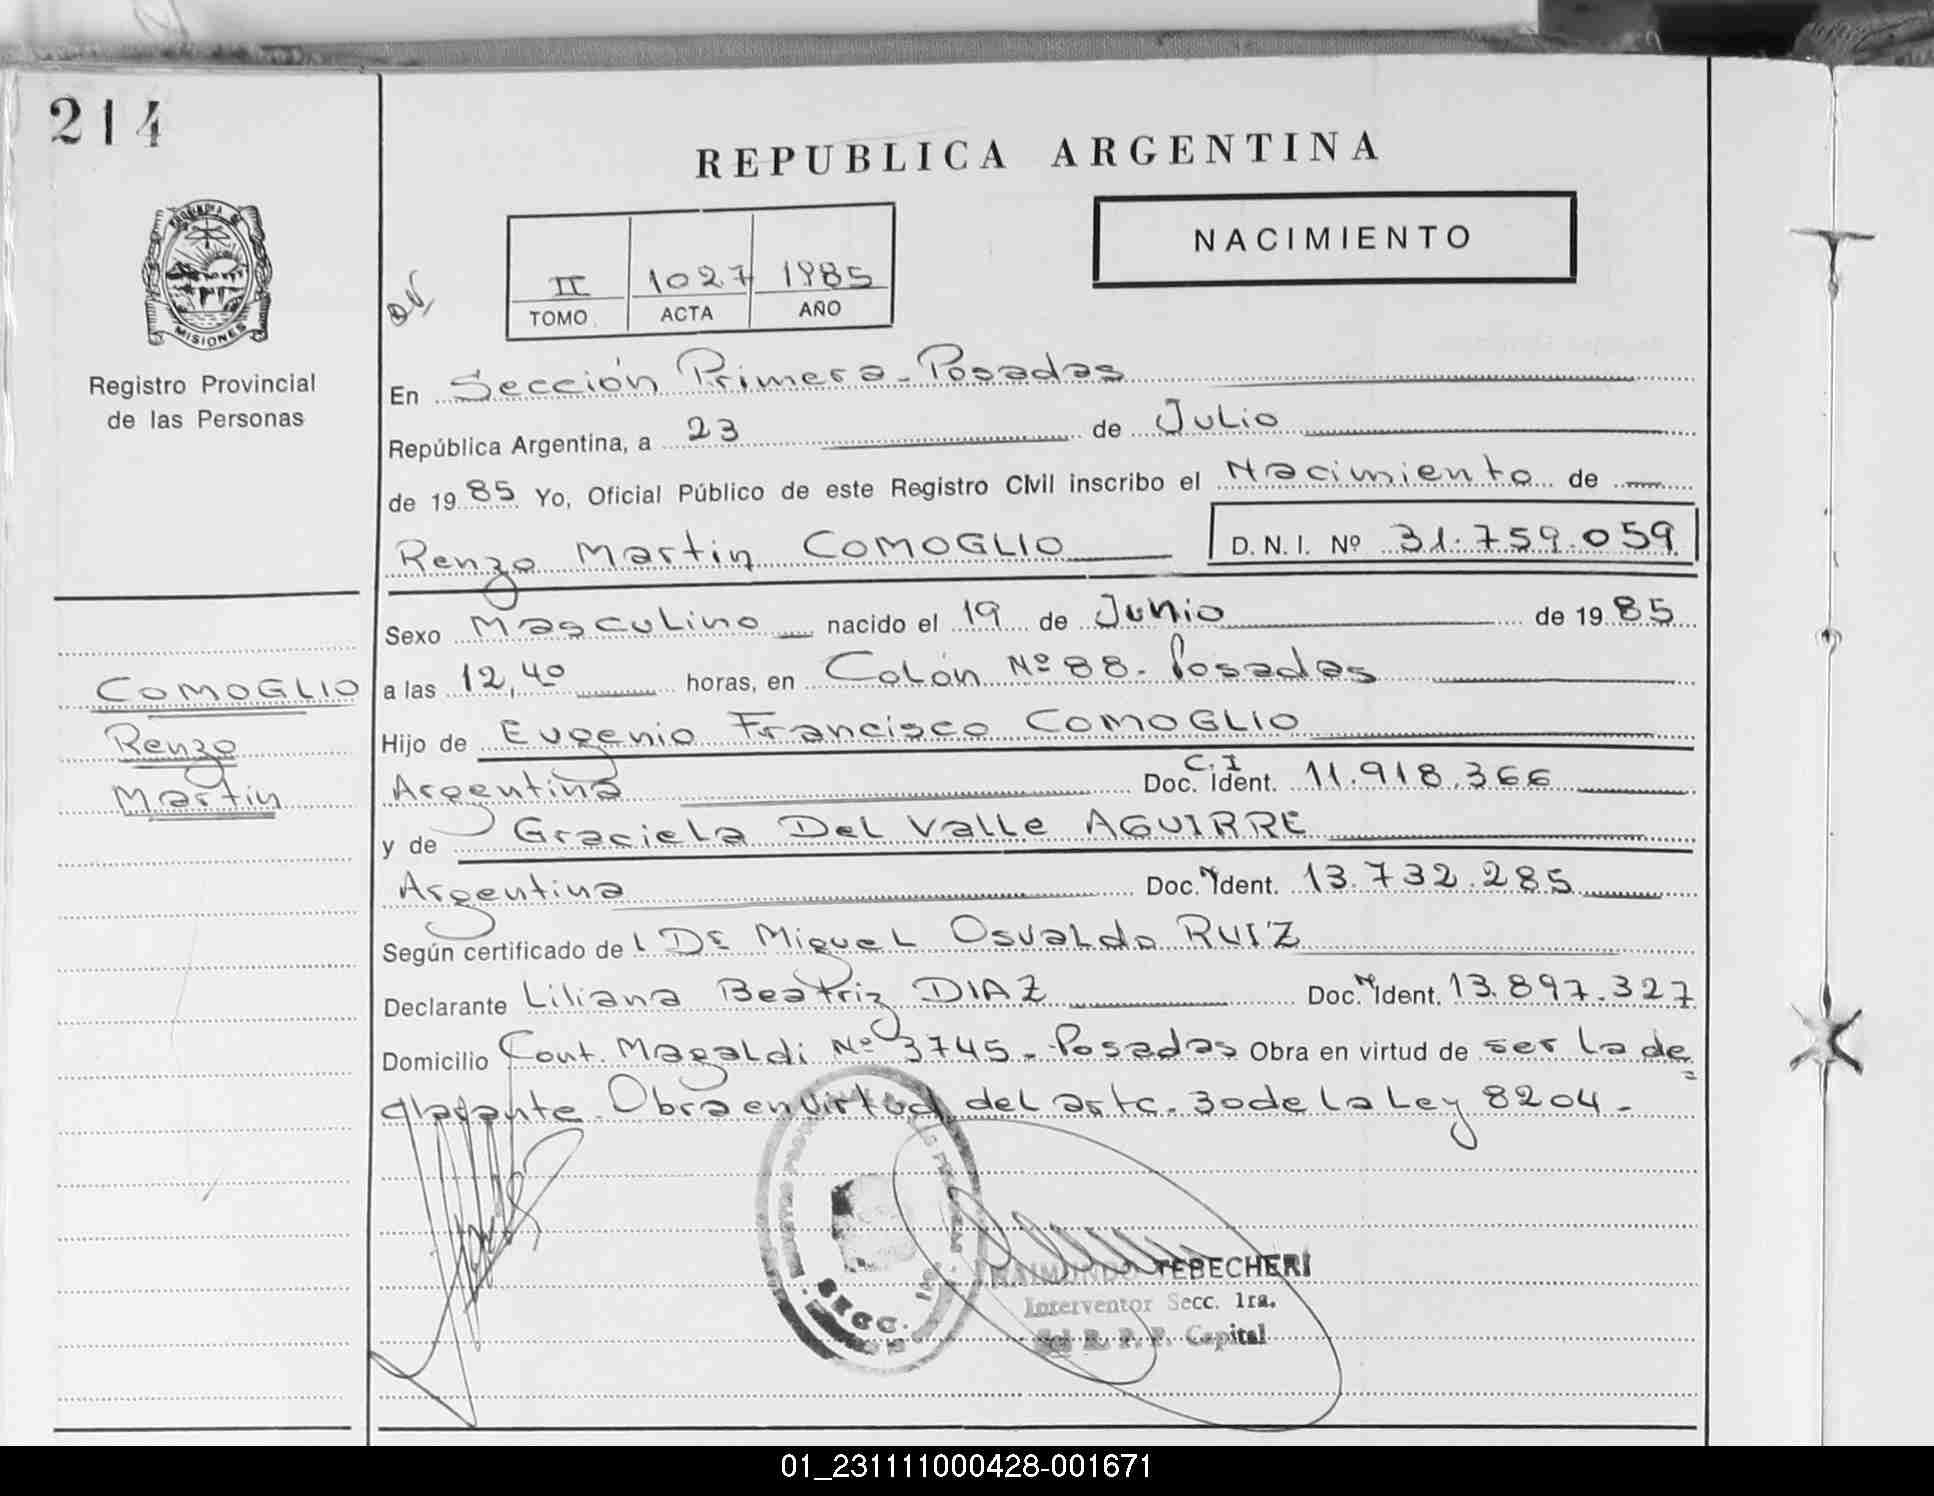 214
REPUBLICA ARGENTINA
PROVINCIA DE
MISIONES
Registro Provincial
de las Personas
NACIMIENTO
II 1027 1985
TOMO ACTA AÑO
En Sección Primera - Posadas
República Argentina, a 23 de Julio
de 1985 Yo, Oficial Público de este Registro Civil inscribo el Nacimiento de
Renzo Martin COMOGLIO D. N. I. Nº 31.759.059
Sexo Masculino nacido el 19 de Junio de 1985
COMOGLIO
Renzo
Martin
a las 12,40 horas, en Colón Nº 88 - Posadas
Hijo de Eugenio Francisco COMOGLIO
Argentina Doc. C.I Ident. 11.918.366
y de Graciela Del Valle AGUIRRE
Argentina Doc. N Ident. 13.732.285
Según certificado del Dr Miguel Osvaldo RUIZ
Declarante Liliana Beatriz DIAZ Doc. N Ident. 13.897.327
Domicilio Cont. Magaldi Nº 3745 - Posadas Obra en virtud de ser la de=
clarante. Obra en virtud del artc. 30 de la Ley 8204 -
SECC. 1ra
RAIMUNDO TEBECHERI
Interventor Secc. 1ra.
del R. P. P. Capital
01_231111000428-001671